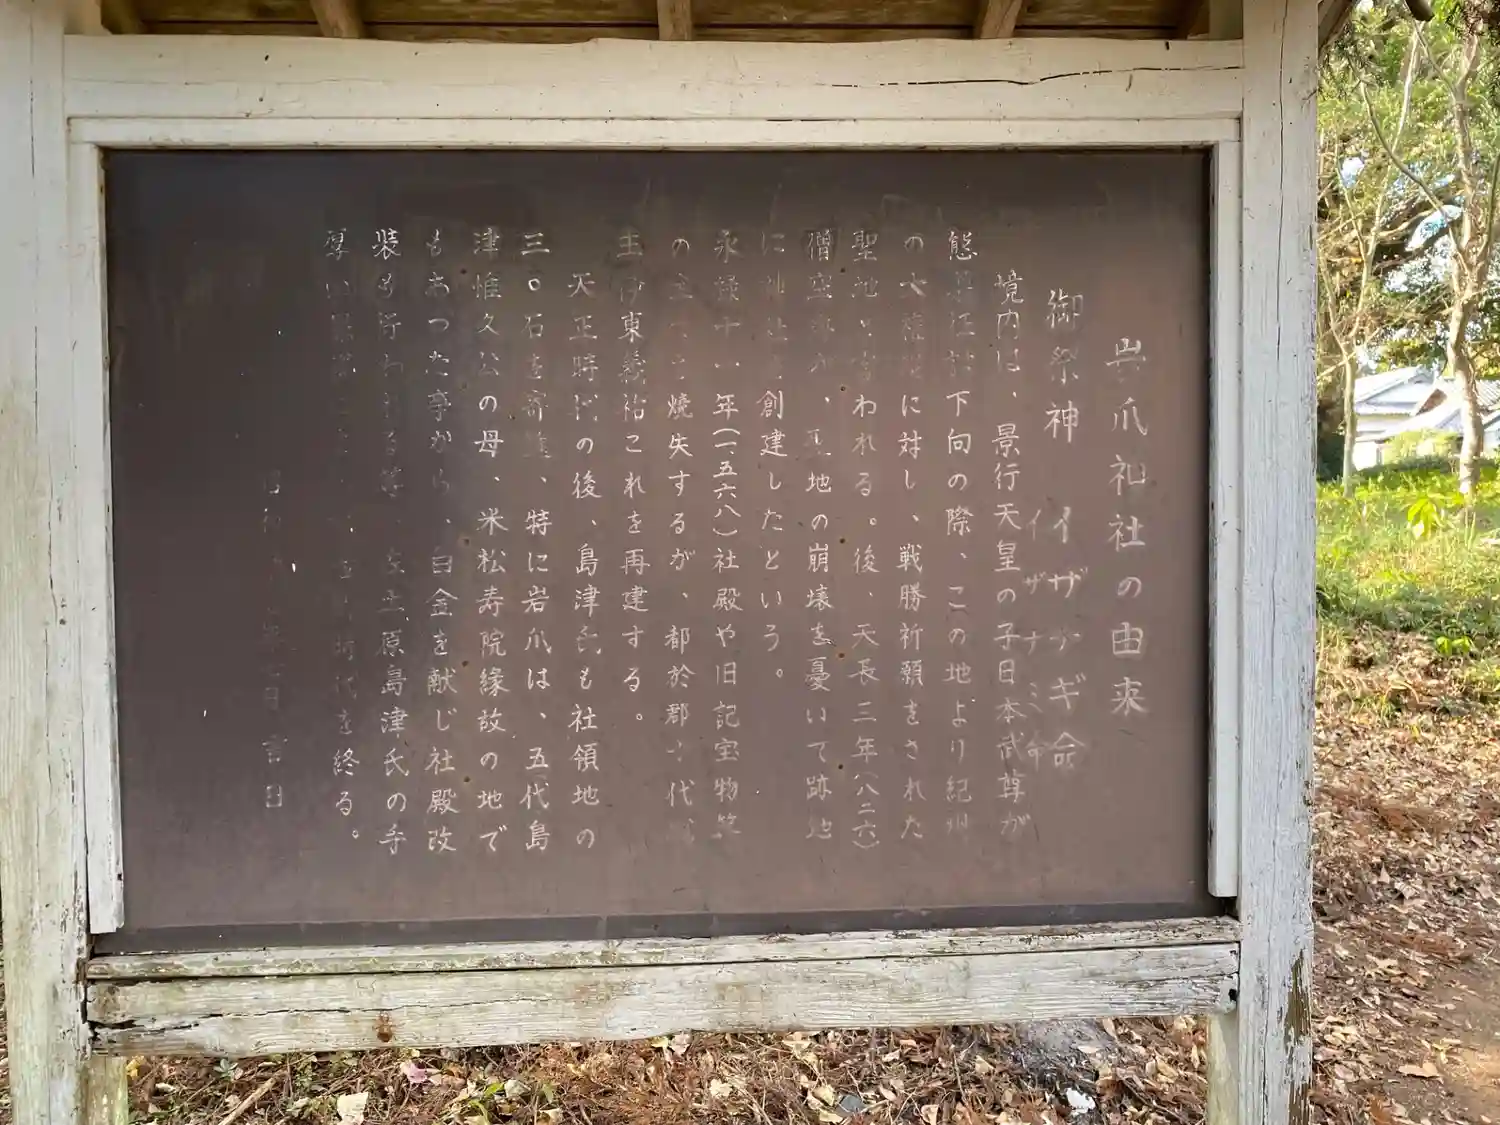 岩爪神社の由来
御祭神 イザナギ命
イザナミ命
境内は、景行天皇の子日本武尊が
熊襲征討下向の際、この地より紀州
の大権現に対し、戦勝祈願をされた
聖地と言われる。後、天長三年(八二六)
僧空海が、聖地の崩壊を憂いて跡地
に神社を創建したという。
永禄十一年(一五六八)社殿や旧記宝物等
の全てを焼失するが、都於郡十代城
主伊東義祐これを再建する。
天正時代の後、島津氏も社領地の
三〇石を寄進、特に岩爪は、五代島
津惟久公の母、米松寿院縁故の地で
もあつた事から、白金を献じ社殿改
装も行われる等、佐土原島津氏の手
厚い 時代を終る。
吉日